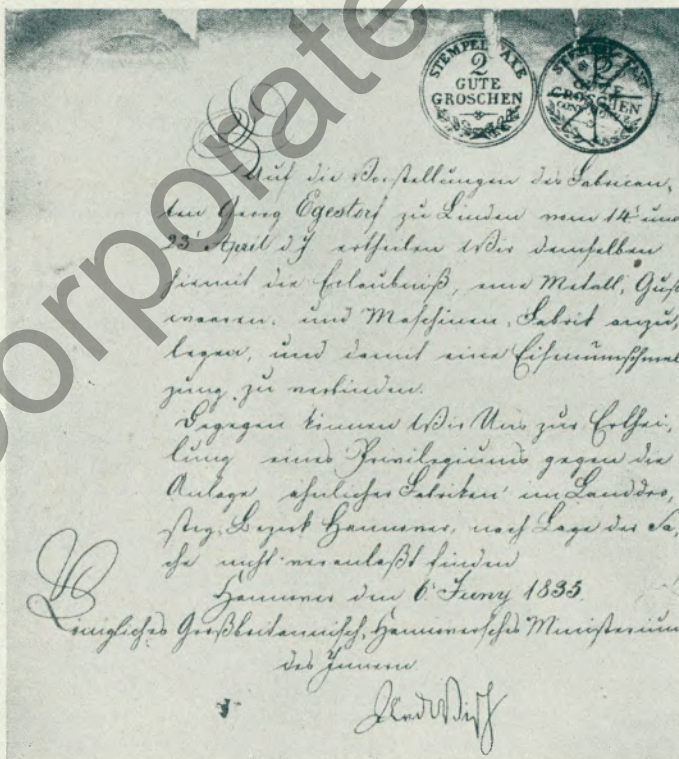 orporate
STEMPELTAXE
2
GUTE
GROSCHEN
STEMPELTAXE
2
GUTE
GROSCHEN
Auf die Vorstellungen des Fabrican,
ten Georg Egestorf zu Linden vom 14t und
23t April dJ ertheilen Wir demselben
hiemit die Erlaubniß, eine Metall, Guß
waaren, und Maschinen, Fabrik anzu,
legen, und damit eine Eisenumschmel
zung zu verbinden.
Dagegen können Wir Uns zur Erthei,
lung eines Privilegiums gegen die
Anlage ähnlicher Fabriken im Landdro,
stey, Bezirk Hannover, nach Lage der Sa,
che nicht veranlaßt finden
Hannover den 6t Juny 1835.
Königliches Großbritannisch, Hannoversches Ministerium
des Innern